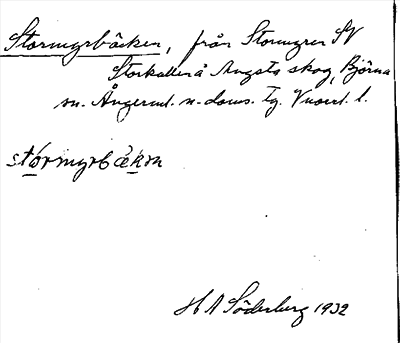 Stormyrbäcken, från Stormyren SV
Storkullen å Ångsta skog, Björna
sn. Ångerml. n. doms. Tg. Vnorrl. l.
stórmyrbäkən
H A Söderberg 1932